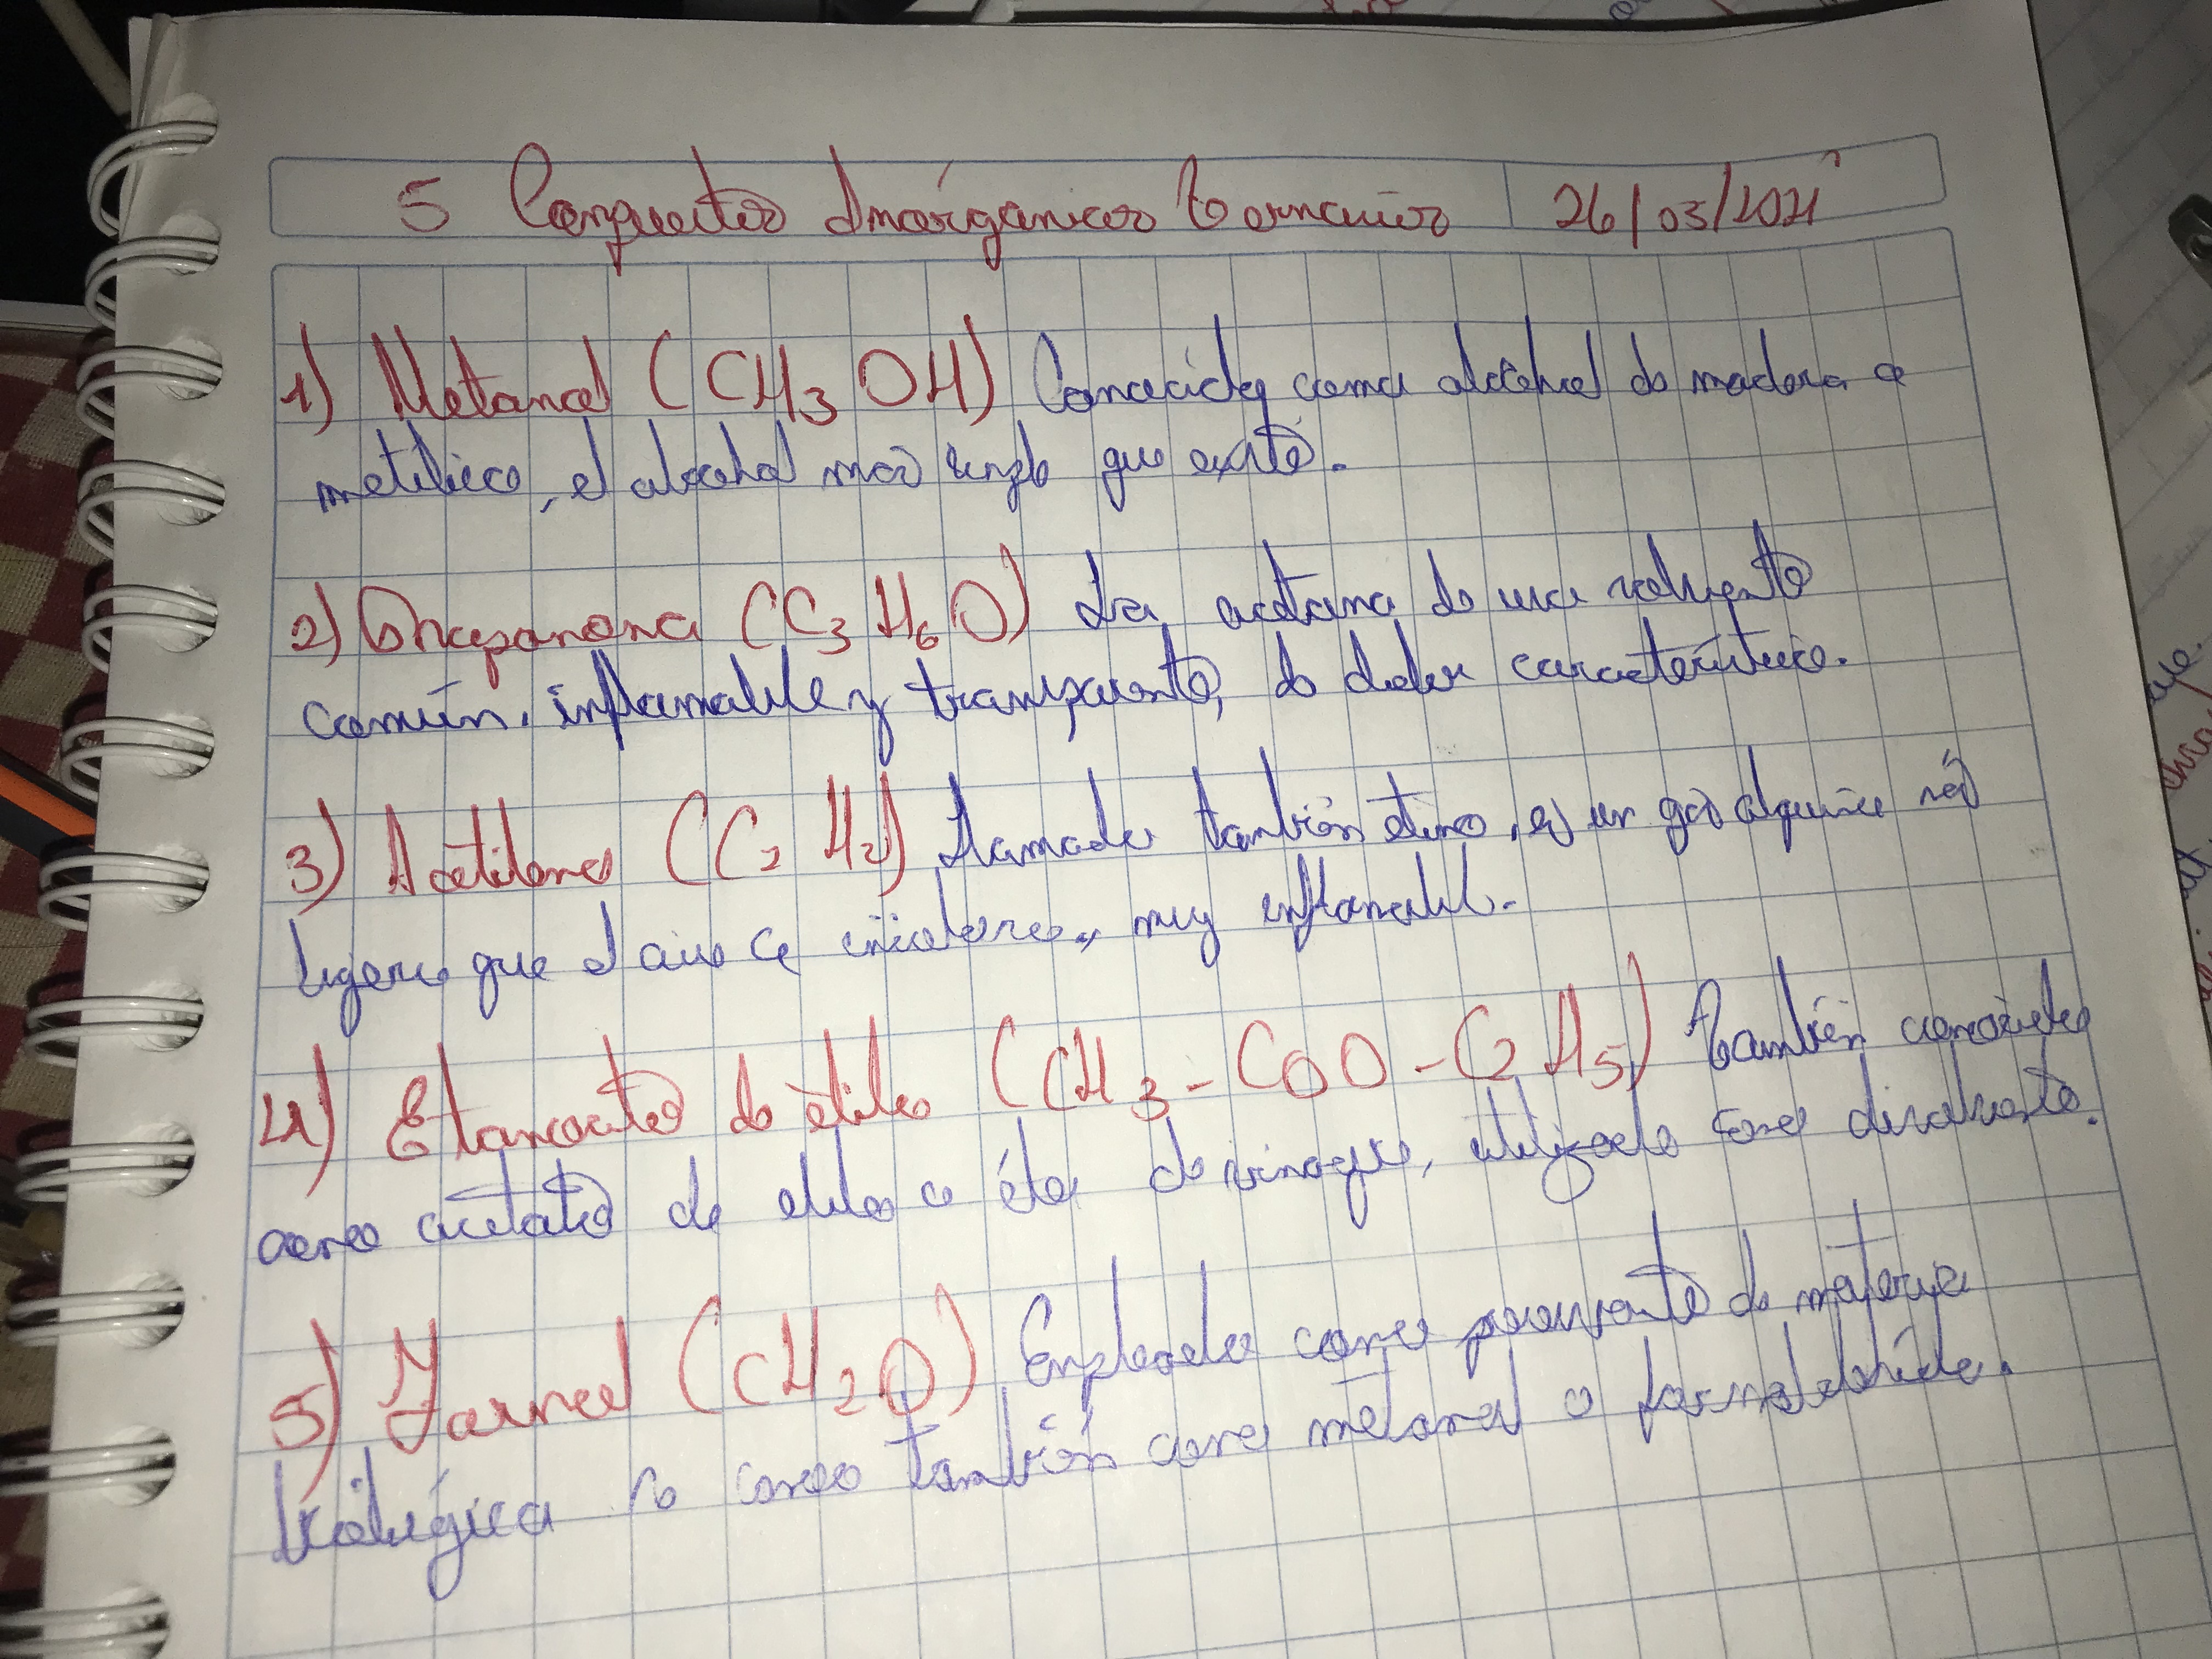 5 Compuestos Inorgánicos ternarios 26/03/2021
1) Metanol (CH3 OH) Conocido como alcohol de madera o
metílico, el alcohol más simple que existe.
2) Propanona (C3 H6 O) La acetona de uso solvente
común, inflamable y transparente, de olor característico.
3) Acetileno (C2 H2) Llamado también etino, es un gas alquino más
ligero que el aire e incoloro, muy inflamable.
4) Etanoato de etilo (CH3 - COO - C2 H5) también conocido
como acetato de etilo o éter de vinagre, utilizado como disolvente.
5) Formol (CH2O) Empleado como preservante de materia
biológica se conoce también como metanal o formaldehído.